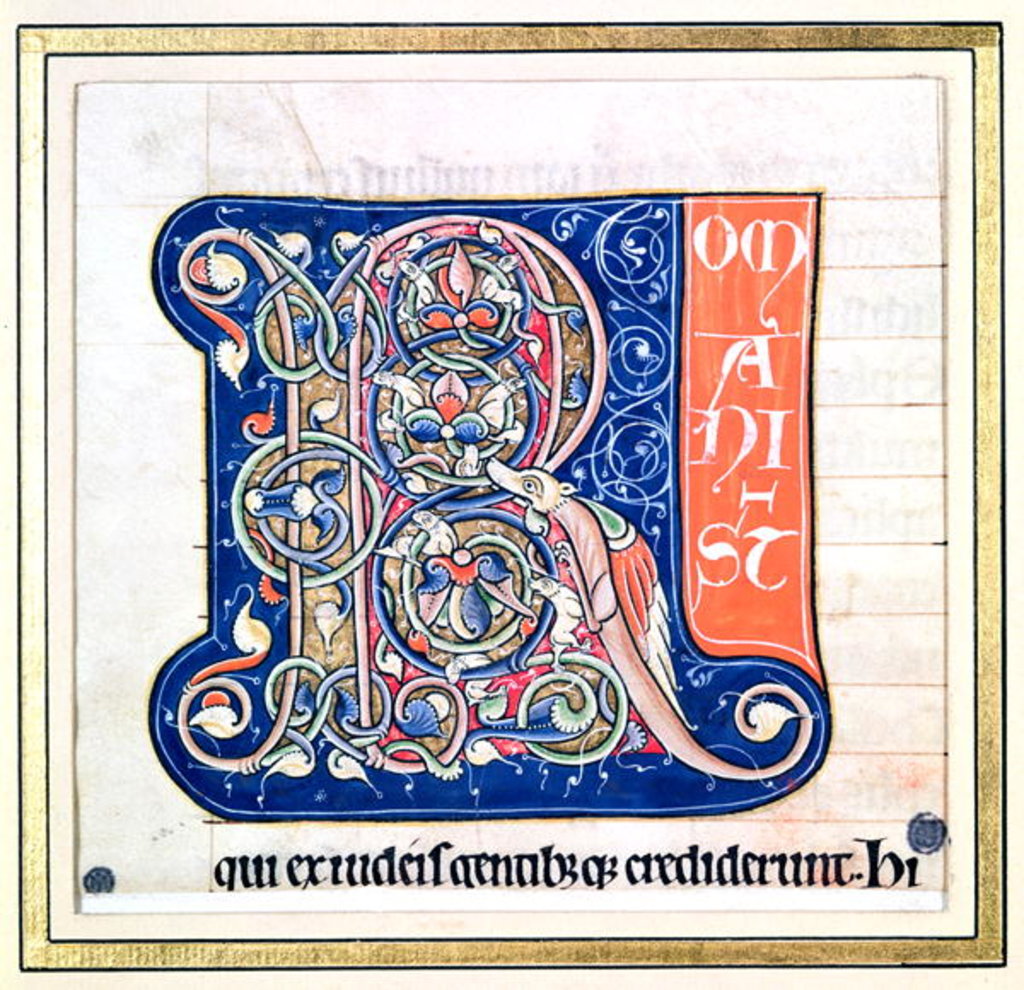 R
OM
A
NI
ST
qui ex iudeis gentibꝫ qꝫ crediderunt. hi